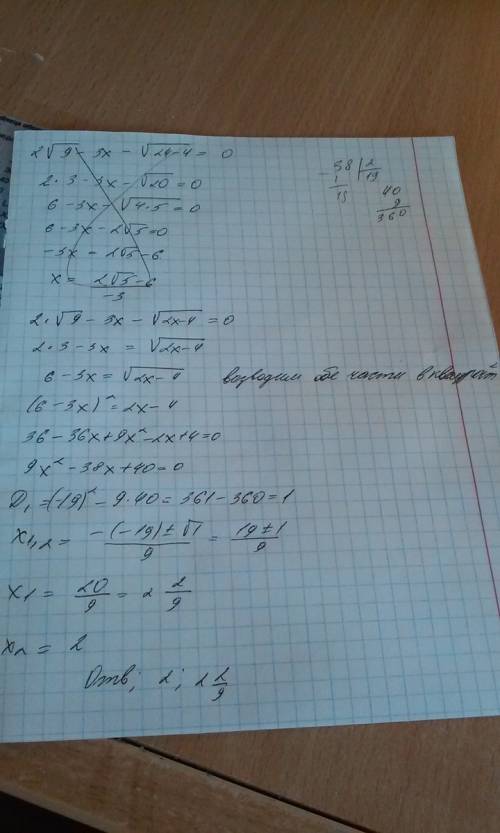 2√9 - 3x - √24-4 = 0
2·3 - 3x - √20 = 0
6 - 3x - √4·5 = 0
6 - 3x - 2√5 = 0
-3x = 2√5 - 6
x = (2√5 - 6)/-3
38 | 2
1 | 19
18
40
9
360
2·√9 - 3x - √2x-4 = 0
2·3 - 3x = √2x-4
6 - 3x = √2x-4 возводим обе части в квадрат
(6 - 3x)² = 2x - 4
36 - 36x + 9x² - 2x + 4 = 0
9x² - 38x + 40 = 0
D₁ = (-19)² - 9·40 = 361 - 360 = 1
x₁,₂ = (-(-19) ± √1)/9 = (19 ± 1)/9
x₁ = 20/9 = 2 2/9
x₂ = 2
Отв; 2; 2 2/9